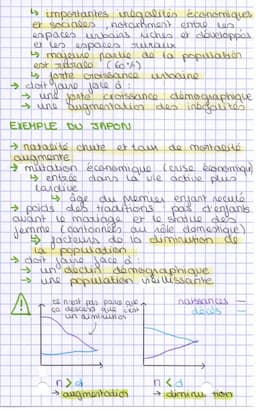 ↳ importantes inégalités économiques
et sociales, notamment entre les
espaces urbains riches et développés
et les espaces ruraux
↳ majeure partie de la population
est rurale (60%)
↳ forte croissance urbaine
→ doit faire face à :
→ une forte croissance démographique
→ une augmentation des inégalités
EXEMPLE DU JAPON
→ natalité chute et taux de mortalité
augmente
→ mutation économique (crise économique)
↳ entrée dans la vie active plus
tardive
↳ âge du premier enfant reculé
→ poids des traditions : pas d'enfants
avant le mariage et le statut des
femme (cantonnées au rôle domestique)
↳ facteurs de la diminution de
la population
→ doit faire face à :
→ un déclin démographique
→ une population vieillissante
ce n'est pas parce que
ça descend que c'est
un diminution
naissances —
décès —
n > d
→ augmentation
n < d
→ diminution